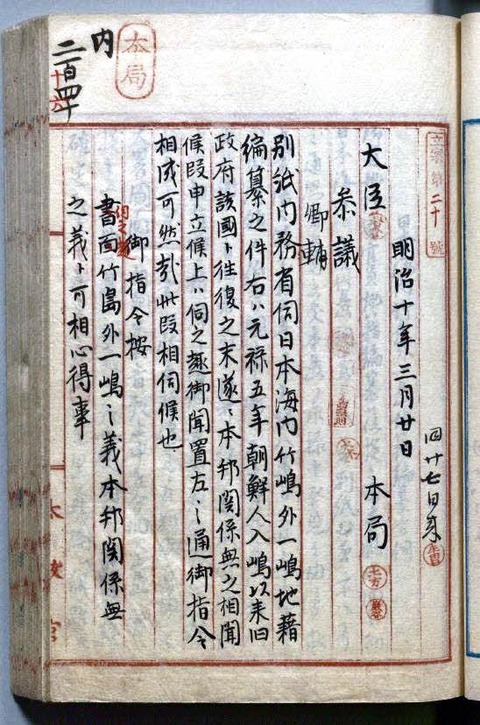 立案第二十號
明治十年三月廿日
同廿七日来
大臣
本局
参議
卿輔
別紙内務省伺日本海内竹嶋外一嶋地籍
編纂之件右ハ元禄五年朝鮮人入嶋以来旧
政府該國ト往復之末遂ニ本邦関係無之相聞
候段申立候上ハ伺之趣御聞置左之通御指令
相成可然哉此段相伺候也
御指令按
伺之趣
書面竹島外一嶋之義本邦関係無
之義ト可相心得事
本局
内
二百四十
十六